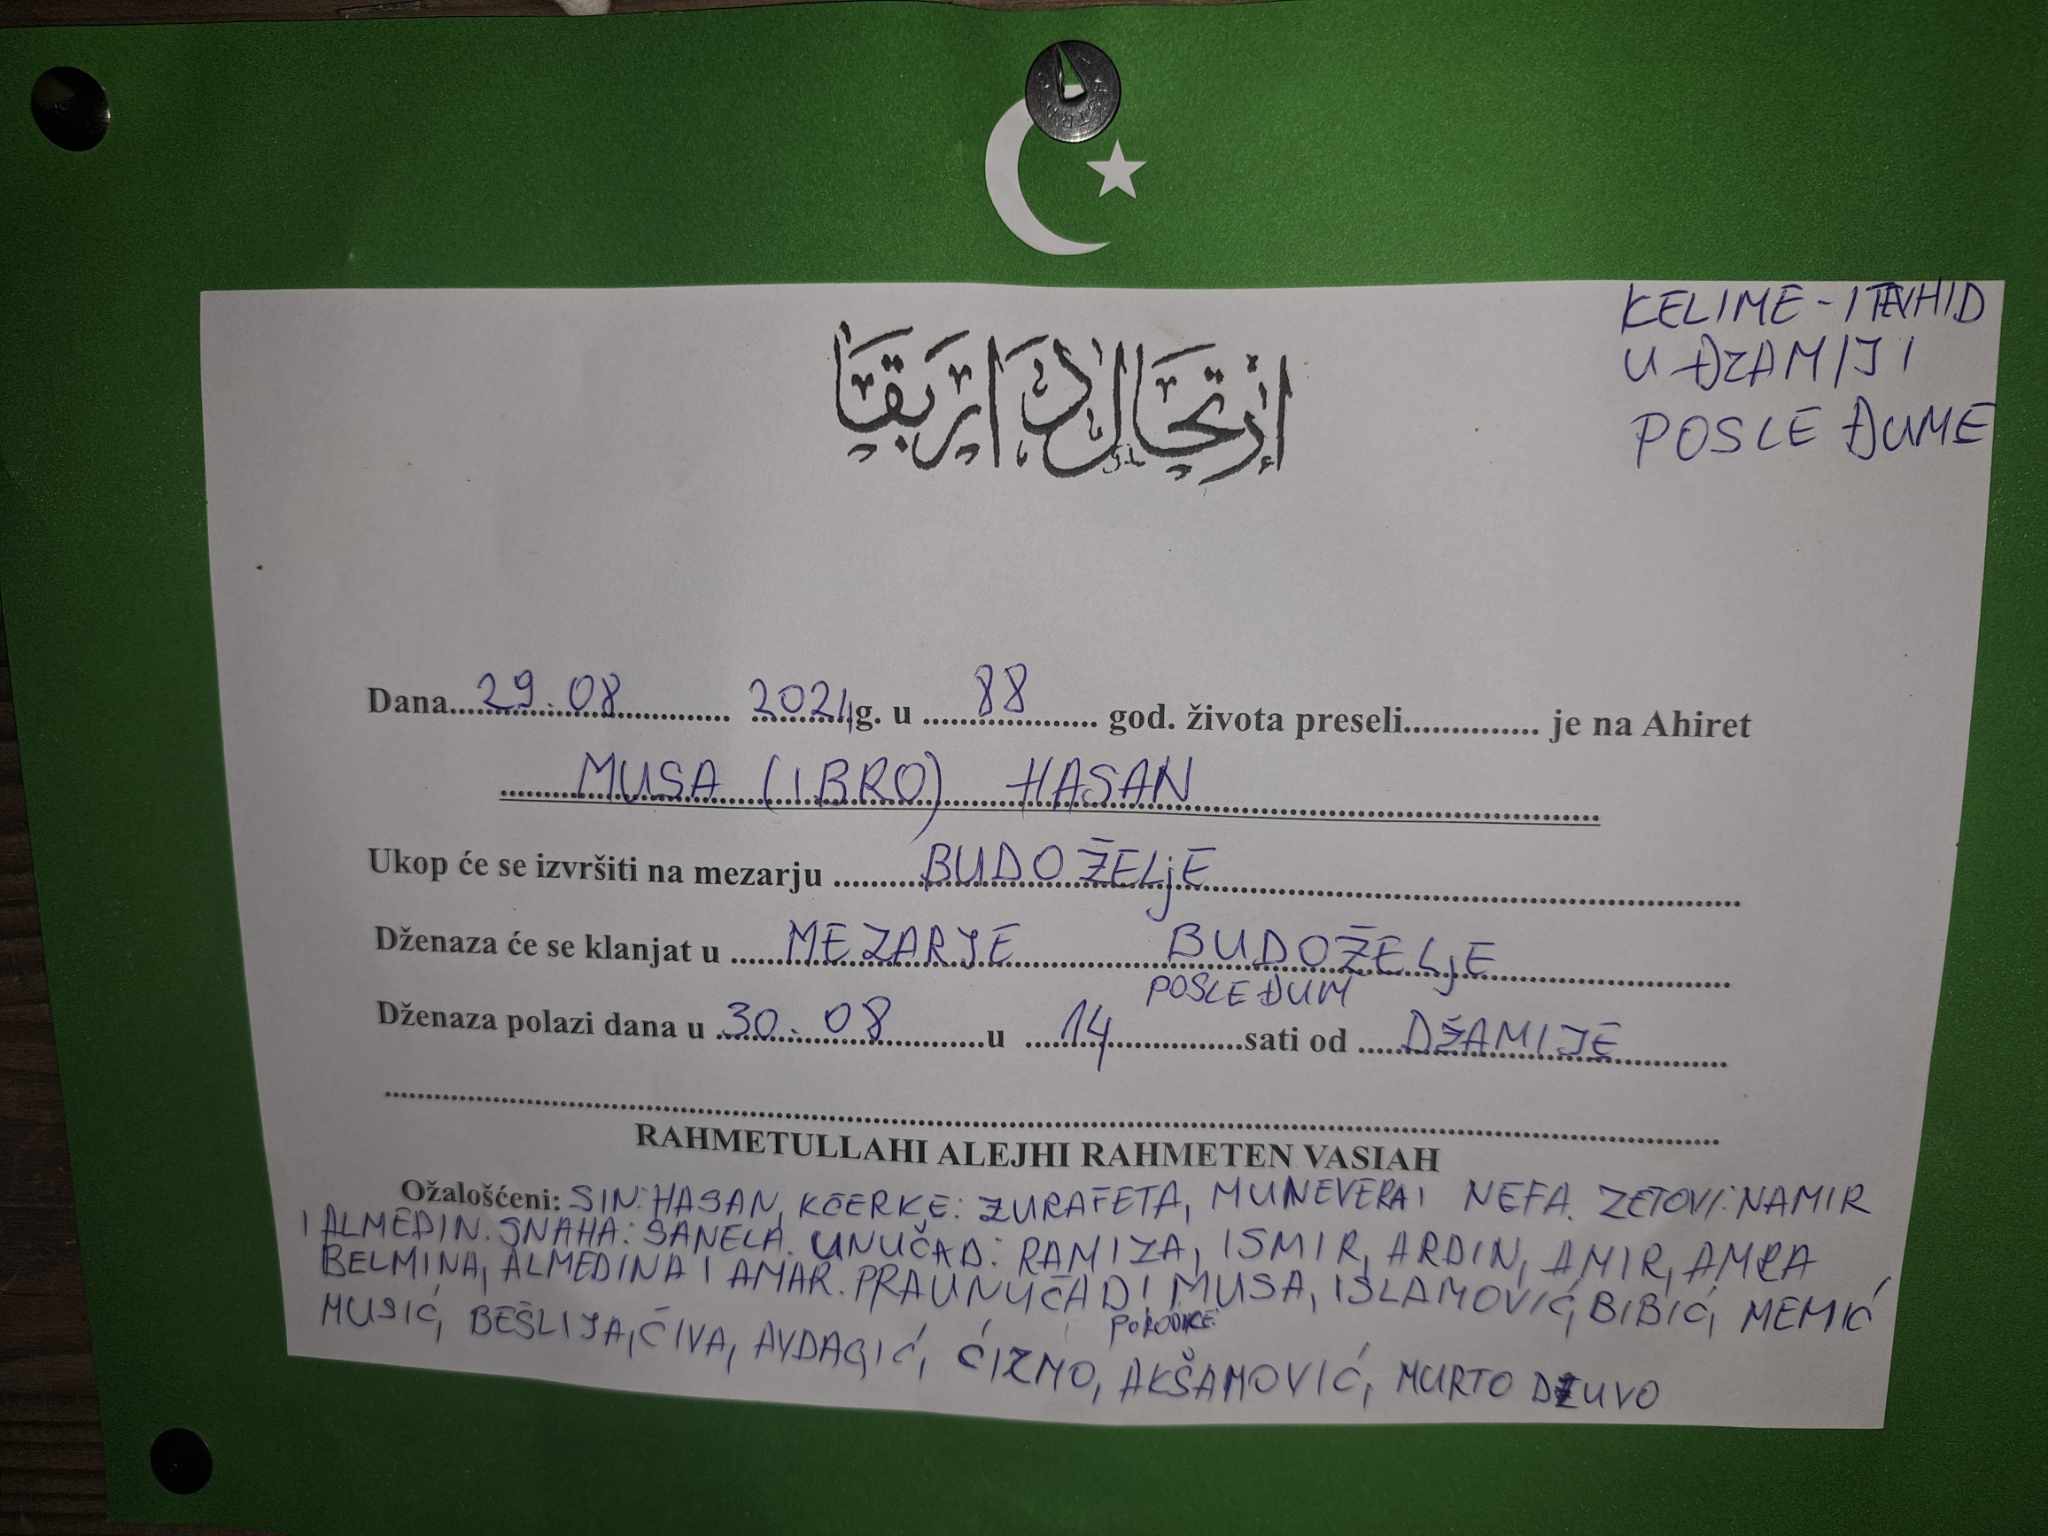 KELIME-I TEVHID
U ĐZAMIJI
POSLE ĐUME
إرتحال دار بقا
Dana 29.08 2024 g. u 88 god. života preseli je na Ahiret
MUSA (IBRO) HASAN
Ukop će se izvršiti na mezarju BUDOŽELjE
Dženaza će se klanjat u MEZARJE BUDOŽELjE
POSLE ĐUM
Dženaza polazi dana u 30.08 u 14 sati od DŽAMIJE
RAHMETULLAHI ALEJHI RAHMETEN VASIAH
Ožalošćeni: SIN: HASAN, KĆERKE: ZURAFETA, MUNEVERA I NEFA. ZETOVI: NAMIR
I ALMEDIN. SNAHA: SANELA. UNUČAD: RAMIZA, ISMIR, ARDIN, AMIR, AMRA
BELMINA, ALMEDINA I AMAR. PRAUNUČAD I MUSA, ISLAMOVIĆ, BIBIĆ, MEMIĆ
PORODICE
MUSIĆ, BEŠLIJA, ĆIVA, AVDAGIĆ, ĆIZMO, AKŠAMOVIĆ, MURTO DŽUVO